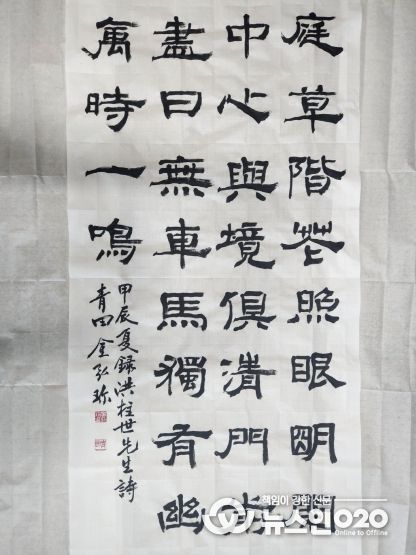 庭草階花照眼明閒
中心與境俱清門前
盡日無車馬獨有幽
禽時一鳴
甲辰夏錄洪柱世先生詩
青田金弘珎
책임이 강한 신문
뉴스인020
Online to Offline